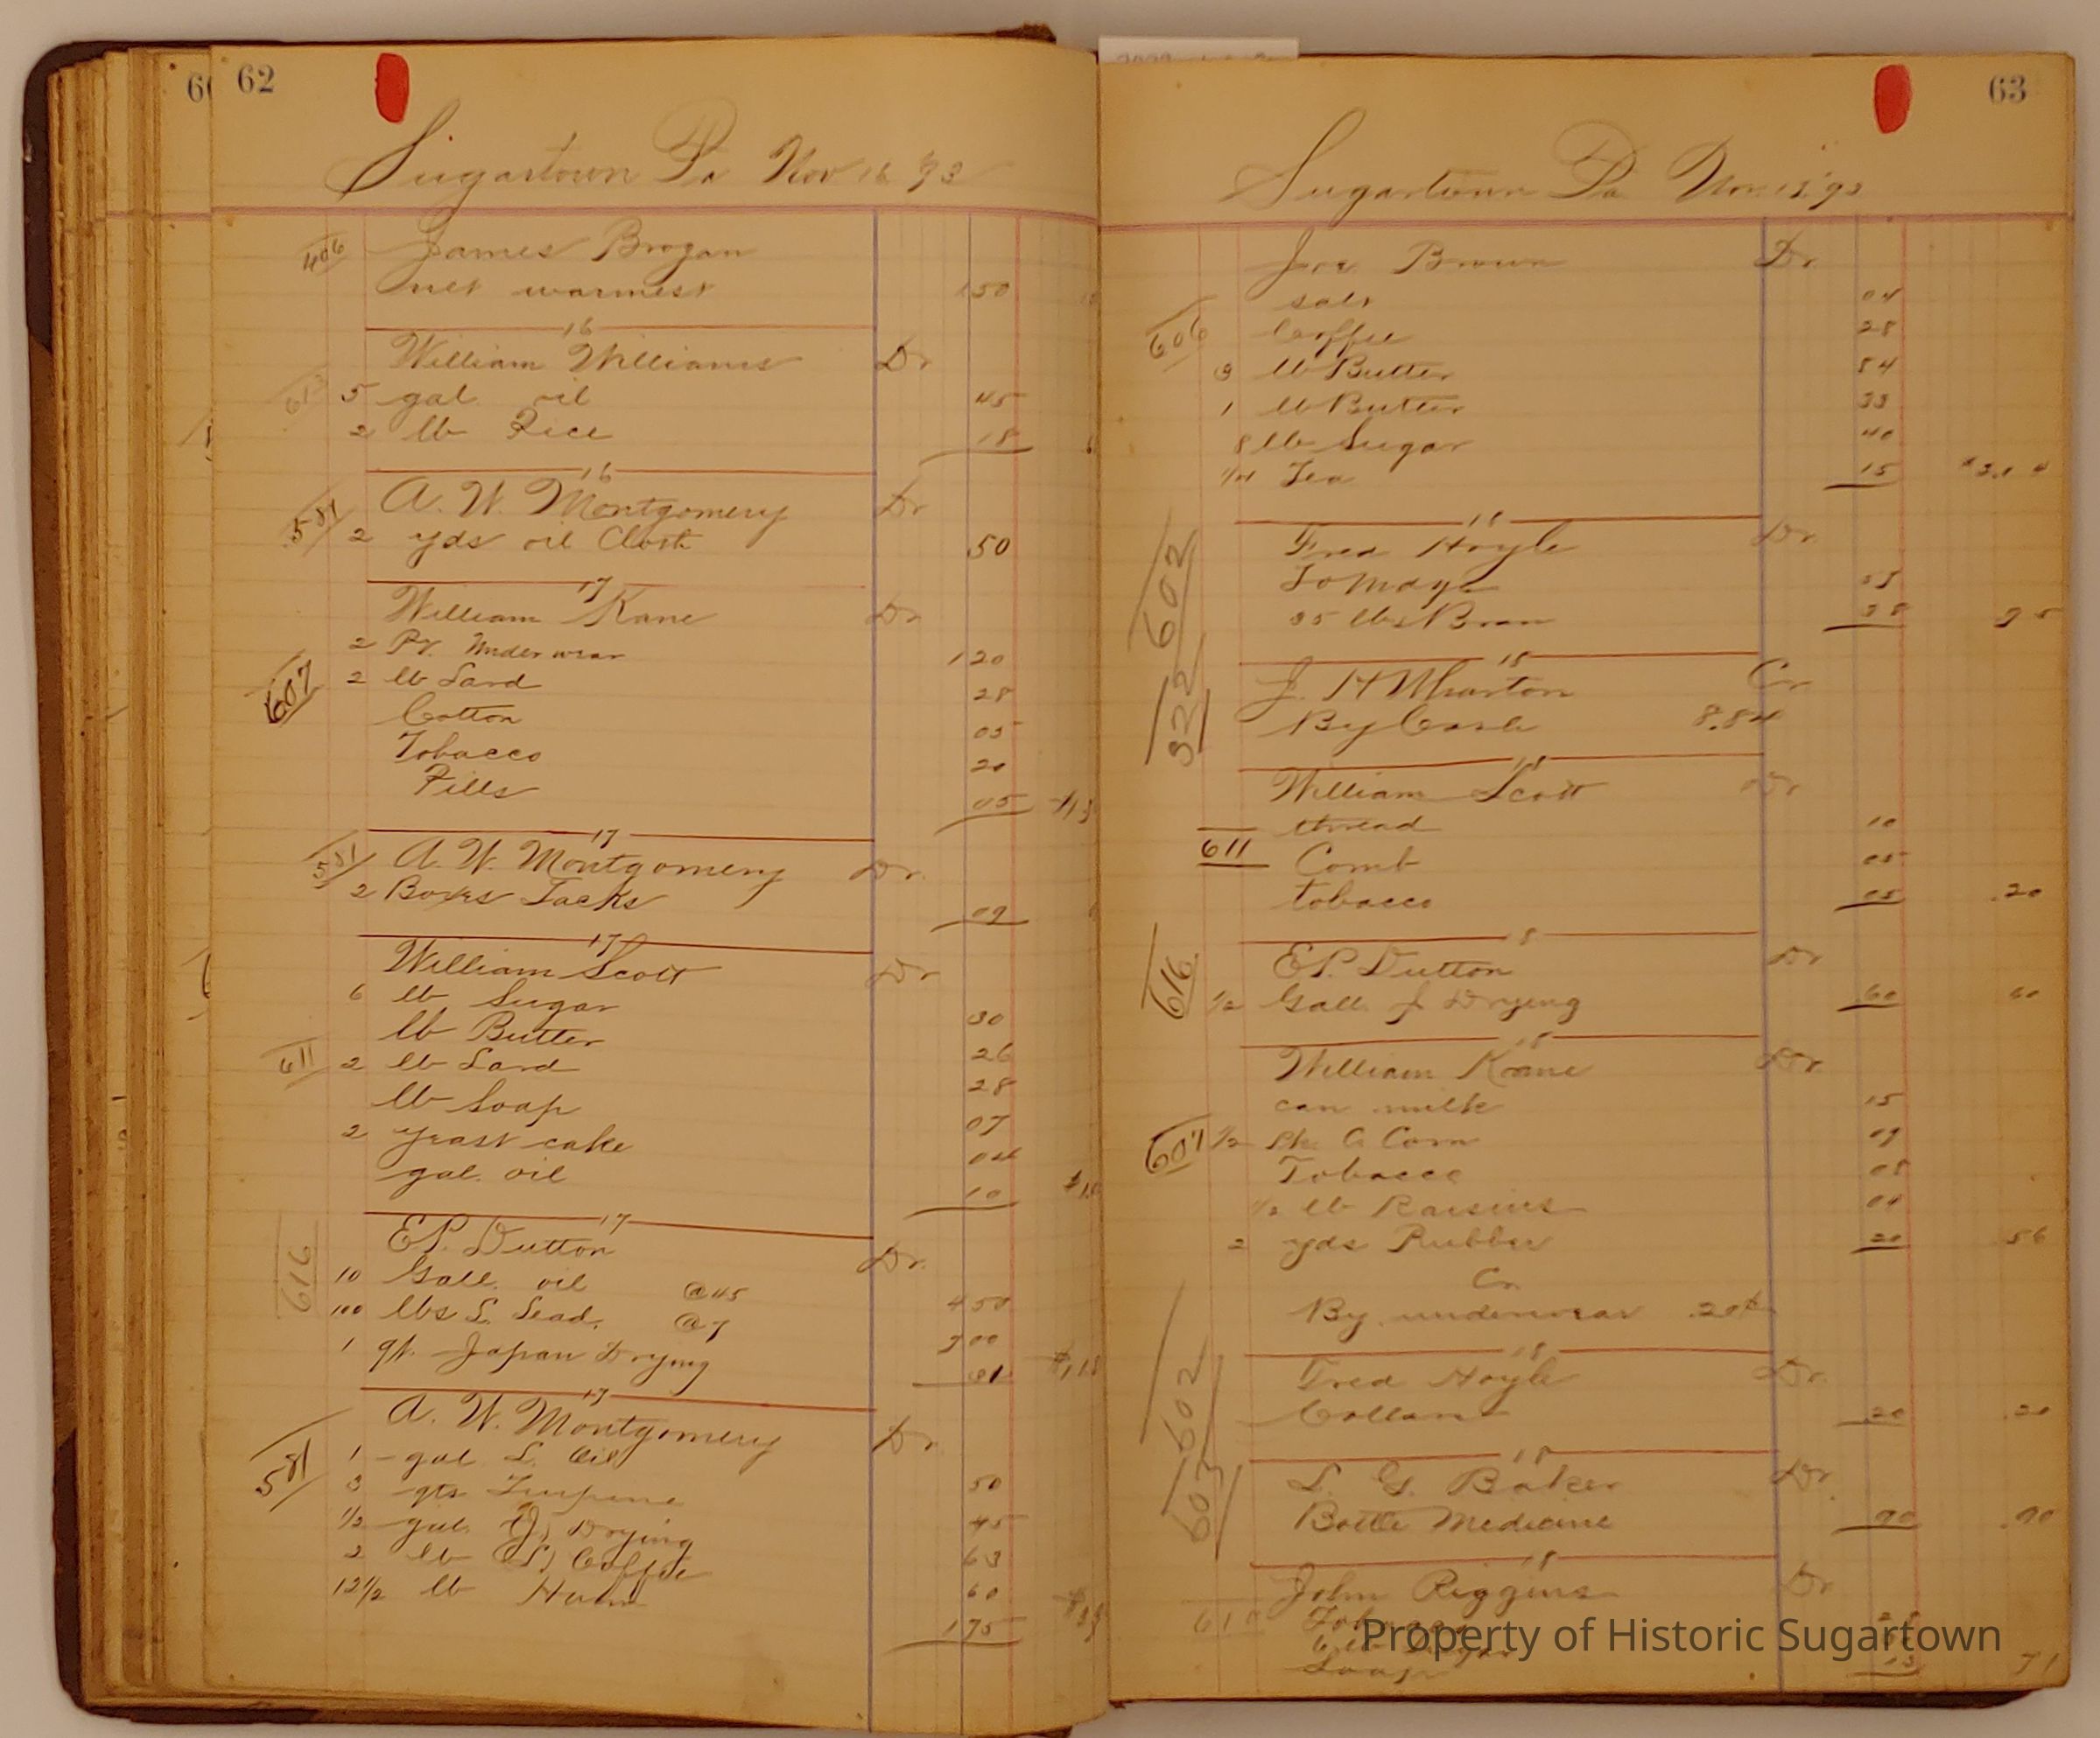 62
Sugartown Pa Nov 16 93
406 James Brogan
net warmest 1 50
16
William Williams Dr
613 5 gal. oil 45
2 lb Rice 18
16
581 A. W. Montgomery Dr
2 yds oil Cloth 50
17
William Kane Dr
2 Pr. Underwear 1 20
607 2 lb Lard 28
Cotton 05
Tobacco 20
Pills 05
17
581 A. W. Montgomery Dr.
2 Boxes Tacks 09
17
William Scott Dr
6 lb Sugar 30
lb Butter 26
611 2 lb Lard 28
lb Soap 07
2 yeast cake 04
gal. oil 10
17
616 E P. Dutton Dr.
10 Gall. oil @45 4 50
100 lbs L. Lead. @7 7 00
1 qt. Japan Drying 01
17
A. W. Montgomery Dr.
581 1 - gal L. Oil 50
3 qts Turpene 45
1/2 gal. (J) Drying 63
2 lb (L) Coffee 60
12 1/2 lb Ham 1 75
63
Sugartown Pa. Nov. 18, 93
Joe Brown Dr.
salt 04
606 Coffee 28
3 lb Butter 84
1 lb Butter 33
8 lb Sugar 40
1/4 Tea 15
18
602 Fred Hoyle Dr.
35 lbs Bran
18
322 J. H Wharton Cr
By Cash 8.84
18
William Scott Dr
thread 10
611 Comb 05
tobacco 05 .20
18
616 E P. Dutton Dr
1/2 Gall. J Drying 60 60
18
William Kane Dr
can milk 15
607 1/2 C. Corn 09
Tobacco 08
1/2 lb Raisins 04
2 yds Rubber 20 56
Cr.
By underwear .20
18
602 Fred Hoyle Dr.
Collars 20 .20
18
603 L. G. Baker Dr.
Bottle Medicine 90 .90
18
John Riggins Dr
610
6 lb Sugar
Soap 13 71
Property of Historic Sugartown